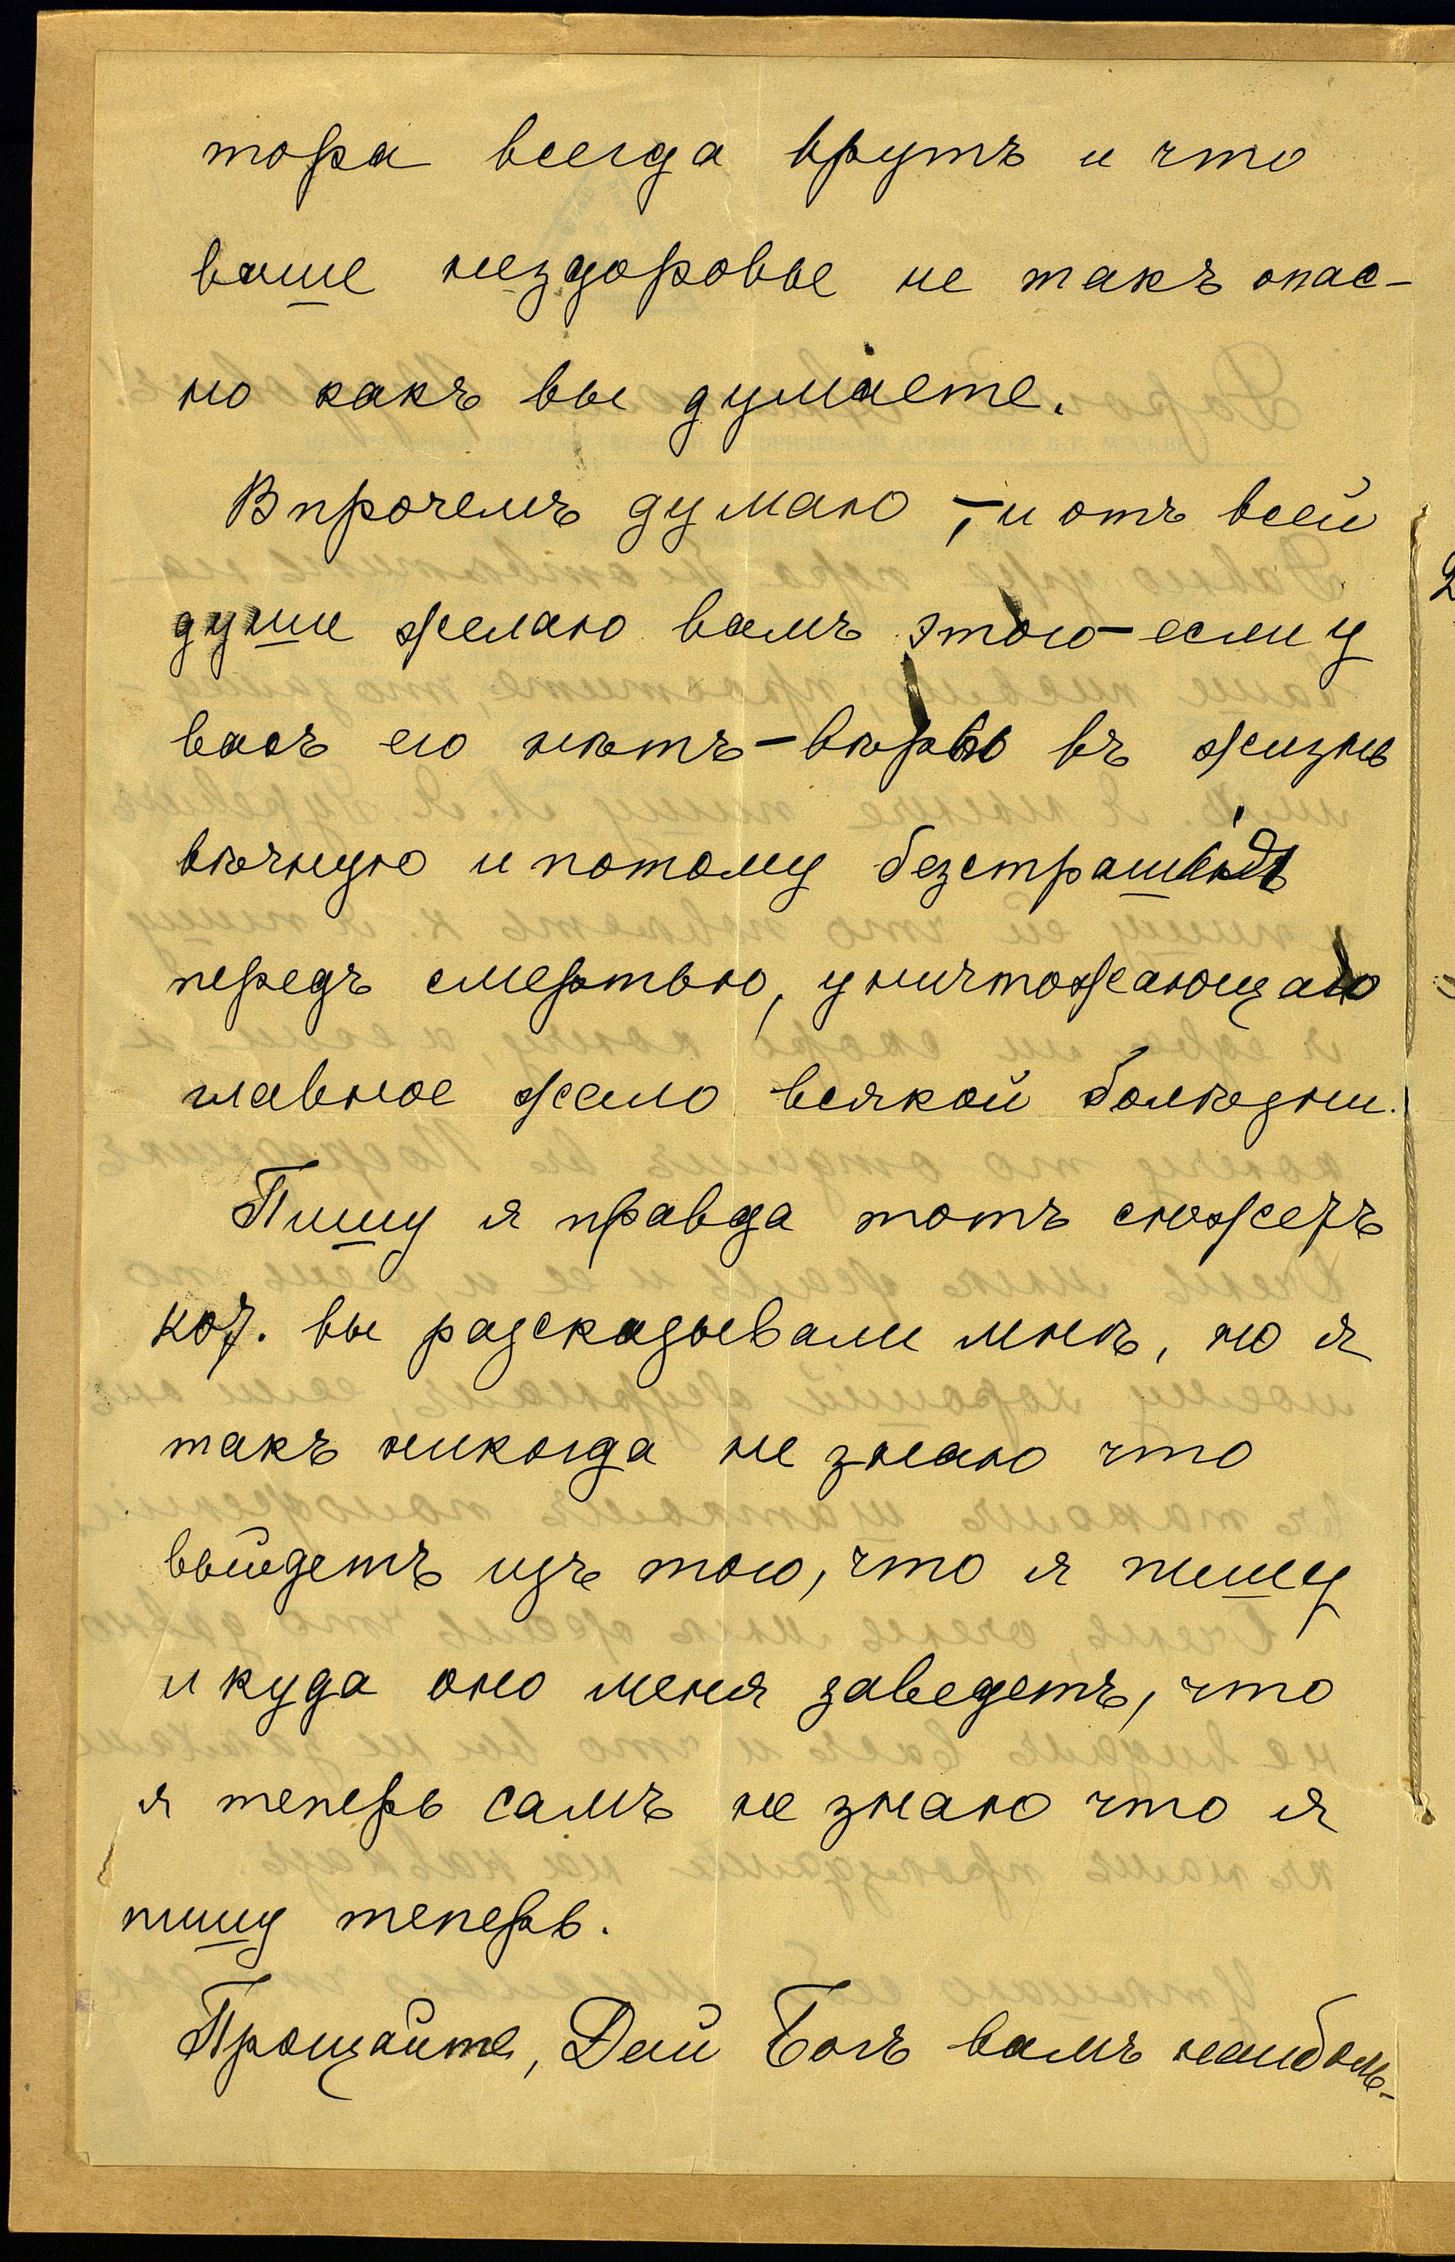 тора всегда врутъ и что
ваше нездоровье не такъ опас-
но какъ вы думаете.
Впрочемъ думаю, – и отъ всей
души желаю вамъ этого – если у
васъ его нѣтъ – вѣры въ жизнь
вѣчную и потому безстрашія
передъ смертью, уничтожающаго
главное жало всякой болѣзни.
Пишу я правда тотъ сюжетъ
кот. вы разсказывали мнѣ, но я
такъ никогда не знаю что
выйдетъ изъ того, что я пишу
и куда оно меня заведетъ, что
я теперь самъ не знаю что я
пишу теперь.
Прощайте, Дай Богъ вамъ наиболь-